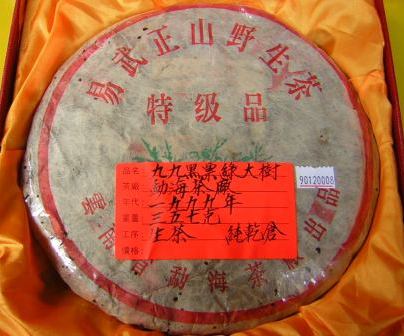 易武正山野生茶
特级品
品名: 九九黑黑綠大樹
茶廠: 勐海茶廠
年代: 一九九九年
重量: 三五七克
工序: 生茶 純乾倉
價格:
90120008
勐海茶